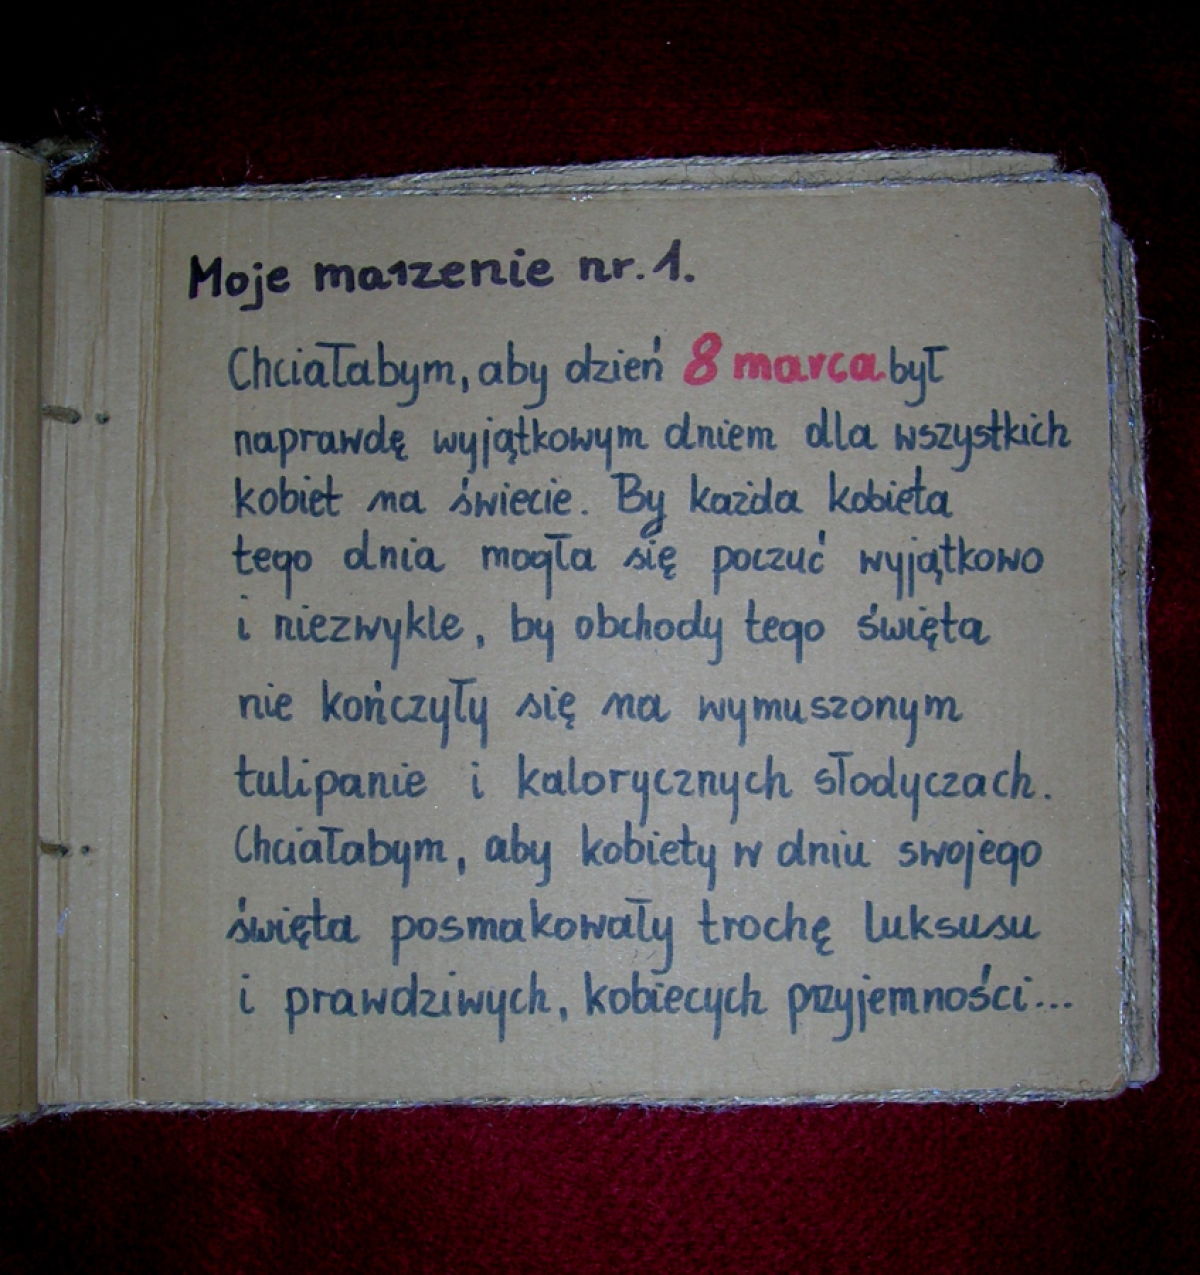 Moje marzenie nr. 1.
Chciałabym, aby dzień 8 marca był
naprawdę wyjątkowym dniem dla wszystkich
kobiet na świecie. By każda kobieta
tego dnia mogła się poczuć wyjątkowo
i niezwykle, by obchody tego święta
nie kończyły się na wymuszonym
tulipanie i kalorycznych słodyczach.
Chciałabym, aby kobiety w dniu swojego
święta posmakowały trochę luksusu
i prawdziwych, kobiecych przyjemności...